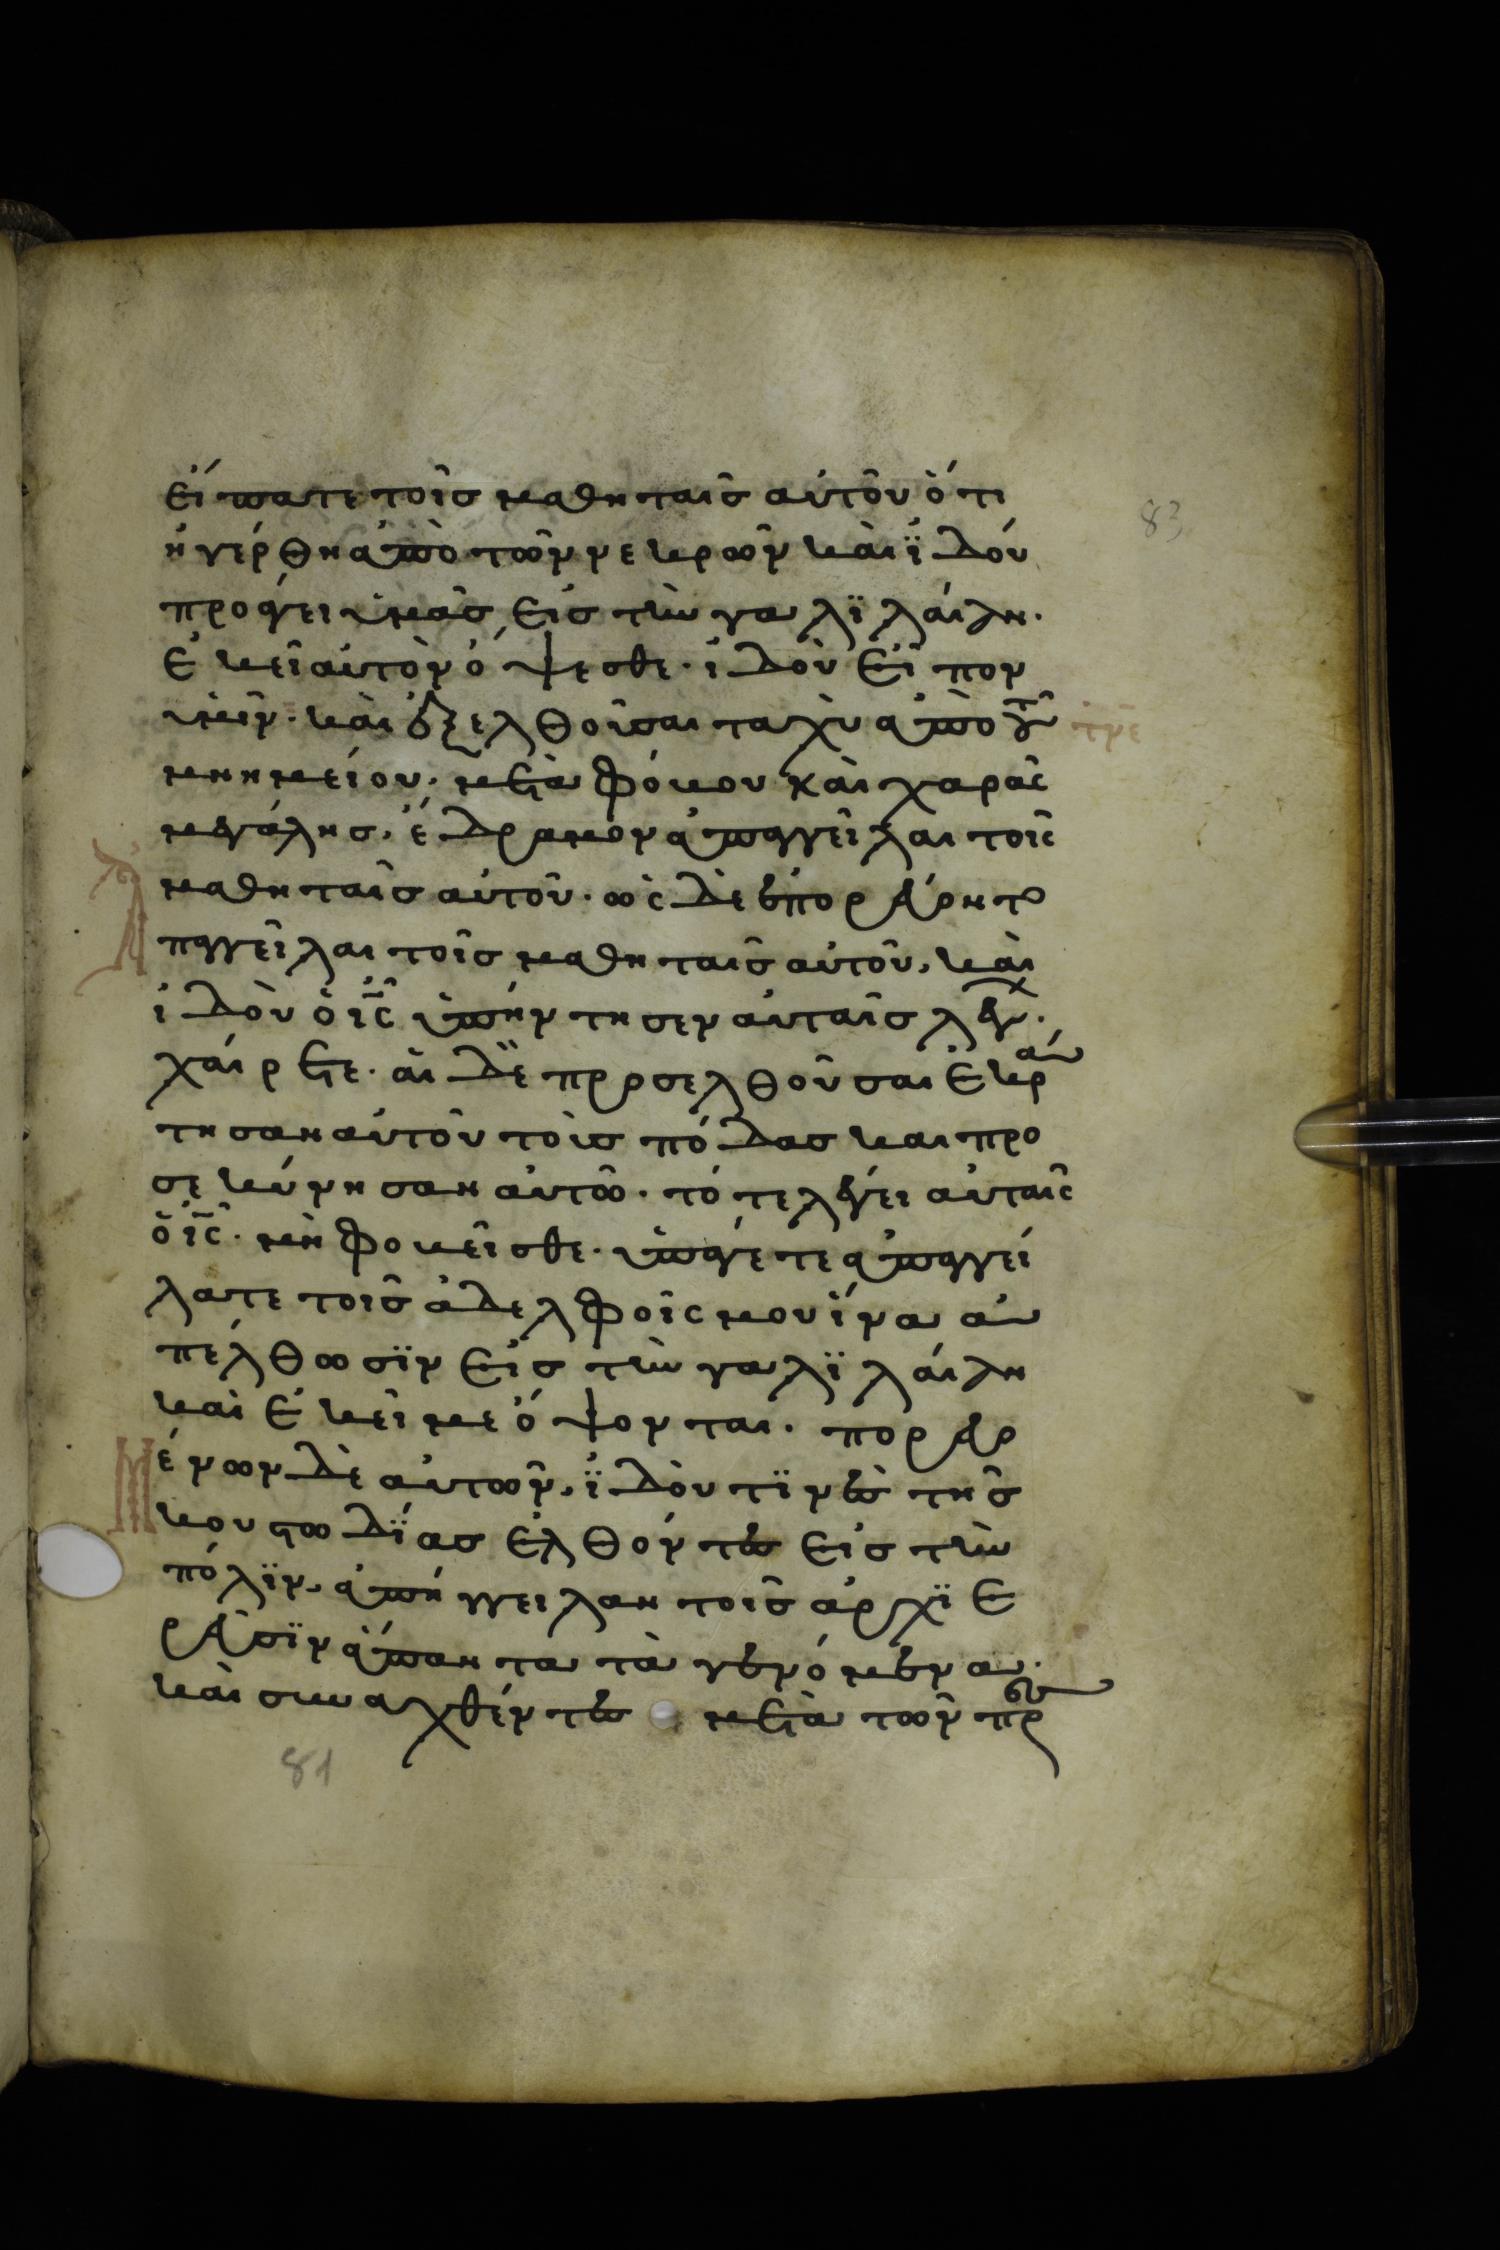 εἴπατε τοῖς μαθηταῖς αὐτοῦ ὅτι
ἠγέρθη ἀπὸ τῶν νεκρῶν καὶ ϊδού
προάγει ὑμᾶς εἰς τὴν γαλϊλαίαν·
ἐκεῖ αὐτὸν ὄψεσθε· ἰδοὺ εἶπον
ὑμῖν· καὶ ἐξελθοῦσαι ταχὺ ἀπὸ τοῦ
μνημείου· μετὰ φόβου καὶ χαρᾶς
μεγάλης· ἔδραμον ἀπαγγεῖλαι τοῖς
μαθηταῖς αὐτοῦ· ὡς δὲ ἐπορεύοντο
ἀπαγγεῖλαι τοῖς μαθηταῖς αὐτοῦ, καὶ
ἰδοὺ ὁ ις ὑπήντησεν αὐταῖς λέγων·
χαίρετε· αἱ δὲ προσελθοῦσαι ἐκρά
τησαν αὐτοῦ τοὺς πόδας καὶ προ
σεκύνησαν αὐτῶ· τότε λέγει αὐταῖς
ὁ ις· μὴ φοβεῖσθε· ὑπάγετε ἀπαγγεί
λατε τοῖς ἀδελφοῖς μου ἵνα ἀ
πέλθωσϊν εἰς τὴν γαλϊλαίαν
καὶ ἐκεῖ με ὄψονται· πορευο
μένων δὲ αὐτῶν, ϊδού τϊνὲς τῆς
κουστωδϊας ἐλθόντες εἰς τὴν
πόλϊν, ἀπήγγειλαν τοῖς ἀρχϊε
ρεῦσϊν ἅπαντα τὰ γενόμενα·
καὶ συναχθέντες μετὰ τῶν πρεσβυ
τρε
83
81